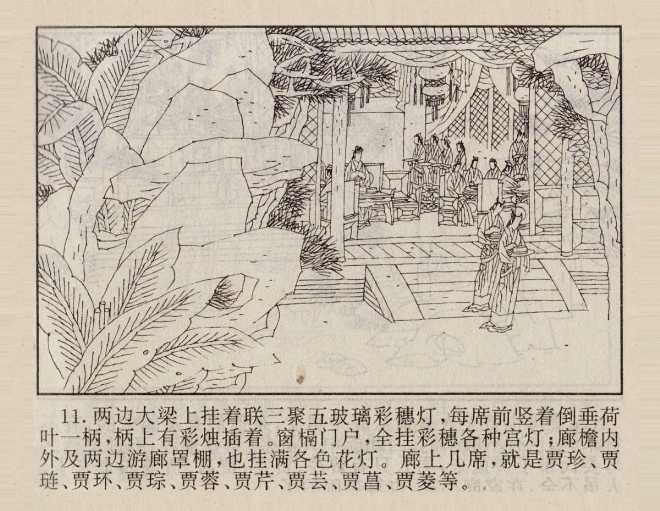 11. 两边大梁上挂着联三聚五玻璃彩穗灯，每席前竖着倒垂荷
叶一柄，柄上有彩烛插着。窗槅门户，全挂彩穗各种宫灯；廊檐内
外及两边游廊罩棚，也挂满各色花灯。廊上几席，就是贾珍、贾
琏、贾环、贾琮、贾蓉、贾芹、贾芸、贾菖、贾菱等。